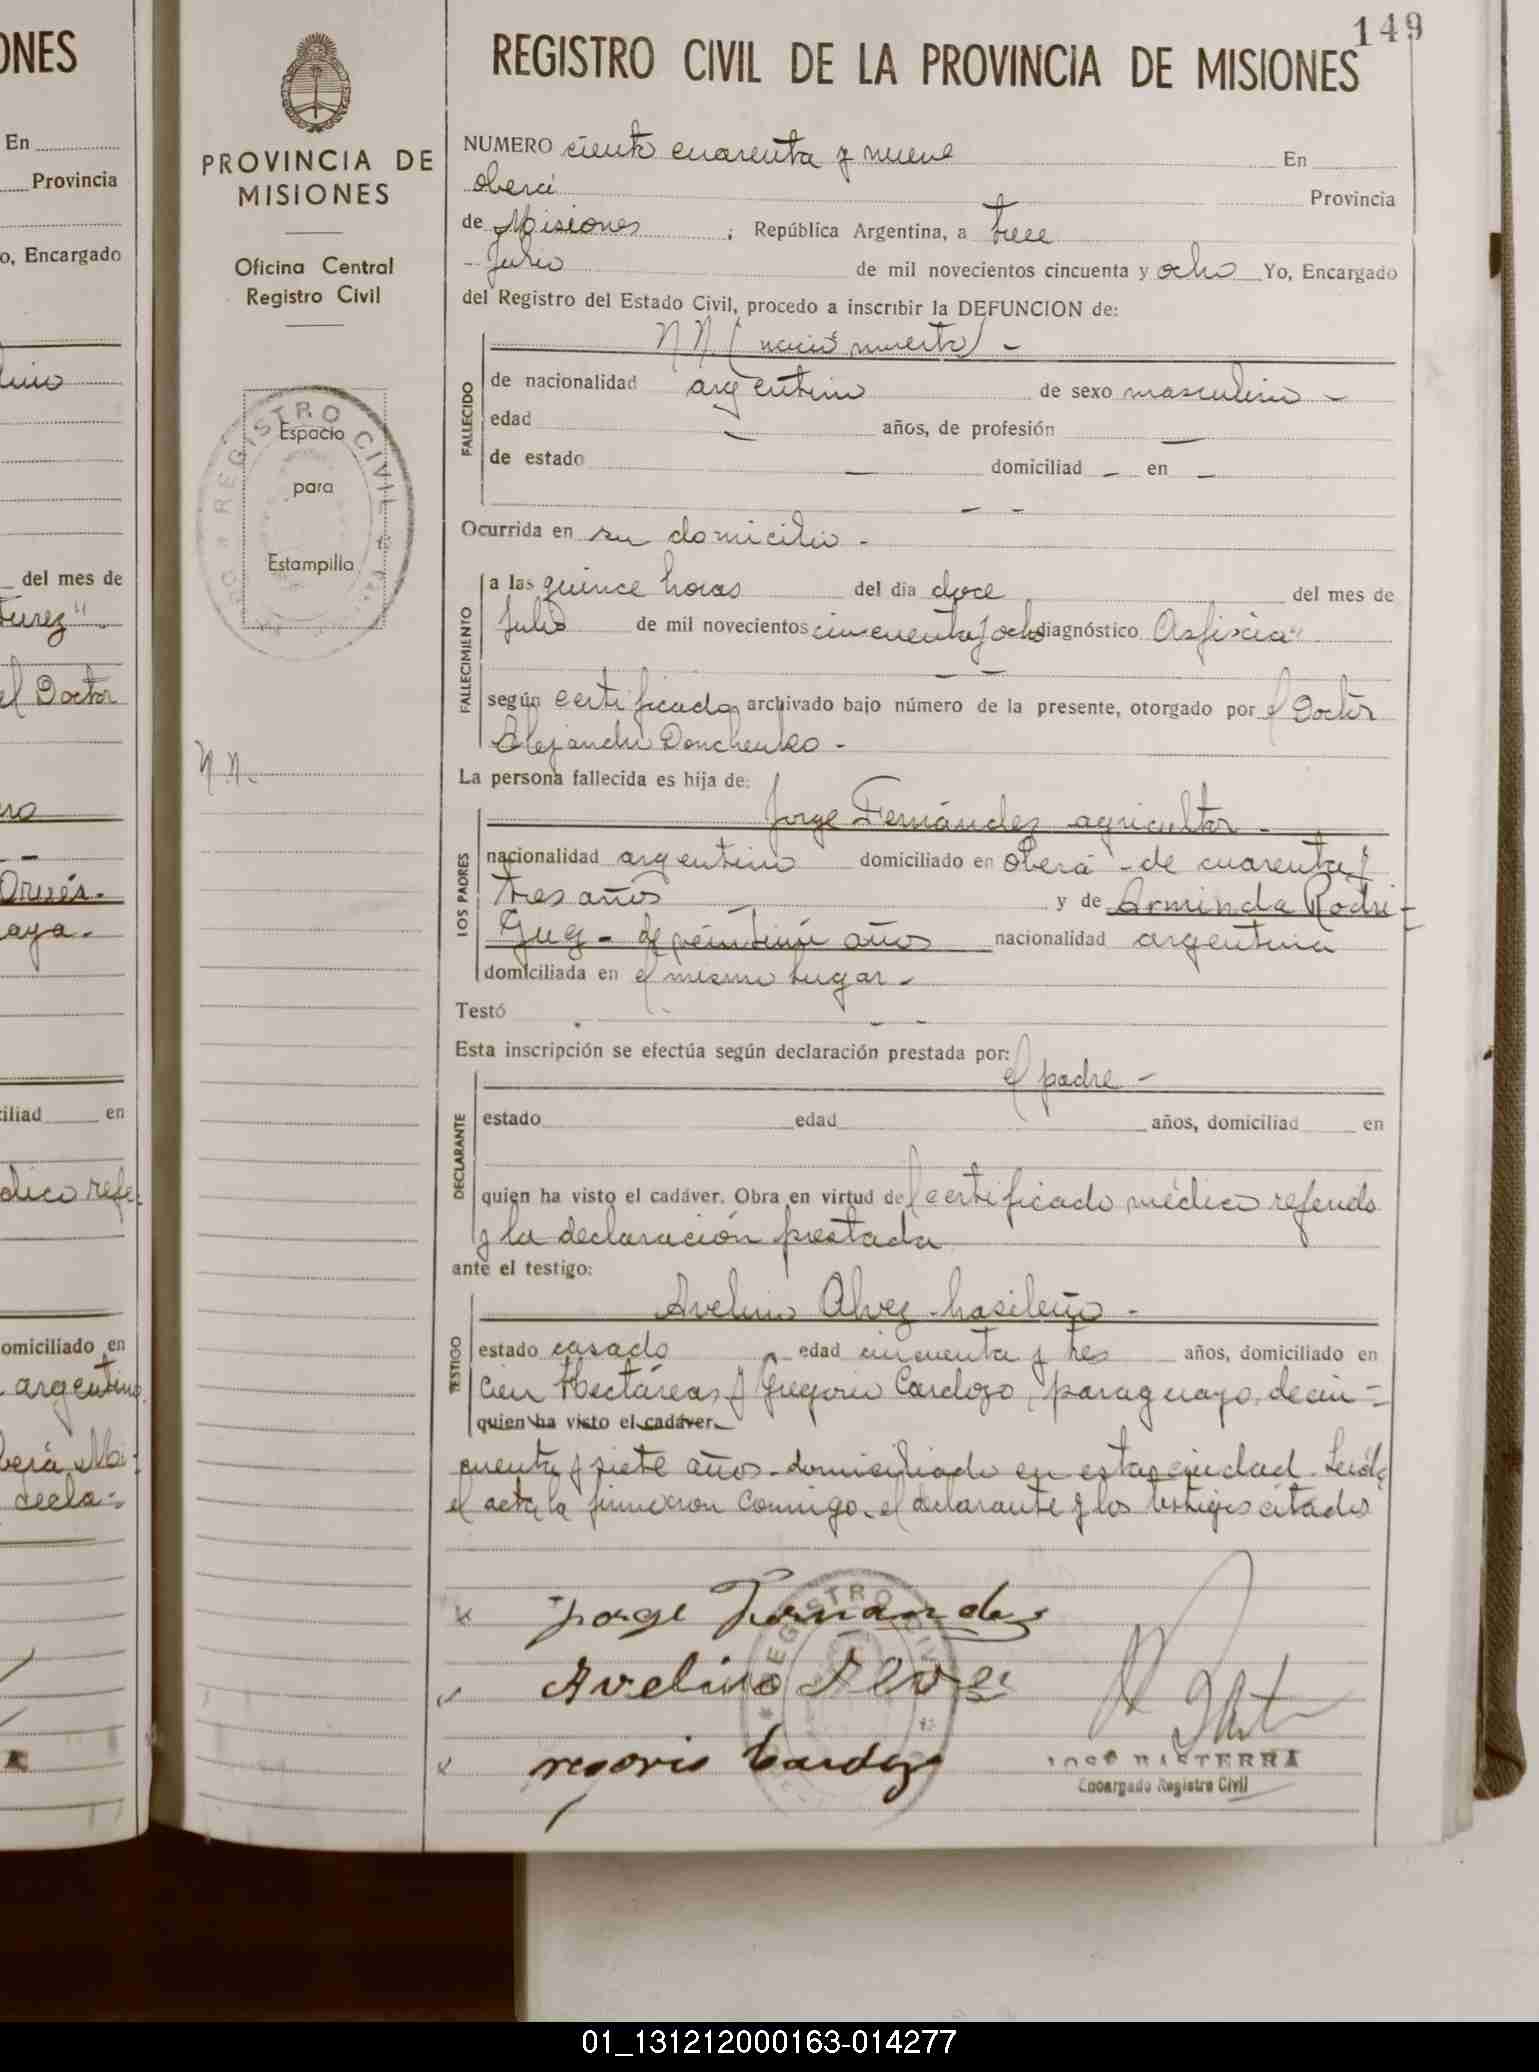 149
ONES
REGISTRO CIVIL DE LA PROVINCIA DE MISIONES
En
Provincia
o, Encargado
del mes de
el Doctor
omiciliado en
argentino
PROVINCIA DE
MISIONES
Oficina Central
Registro Civil
REGISTRO CIVIL
Espacio
para
Estampilla
N.N.
NUMERO ciento cuarenta y nueve En
Oberá Provincia
de Misiones ; República Argentina, a trece
Julio de mil novecientos cincuenta y ocho Yo, Encargado
del Registro del Estado Civil, procedo a inscribir la DEFUNCION de:
N N (nació muerto) -
FALLECIDO
de nacionalidad argentino de sexo masculino -
edad — años, de profesión —
de estado — domiciliad - en -
- -
Ocurrida en su domicilio -
FALLECIMIENTO
a las quince horas del día doce del mes de
Julio de mil novecientos cincuenta y ocho diagnóstico Asfixia"
- -
según certificado archivado bajo número de la presente, otorgado por el Doctor
Alejandro Donchenko -
La persona fallecida es hija de:
LOS PADRES
Jorge Fernández agricultor -
nacionalidad argentino domiciliado en Oberá - de cuarenta y
tres años - y de Arminda Rodri-
guez - de años nacionalidad argentina
domiciliada en el mismo lugar -
Testó - -
Esta inscripción se efectúa según declaración prestada por:
DECLARANTE
el padre -
estado edad años, domiciliad en
quien ha visto el cadáver. Obra en virtud del certificado médico referido
y la declaración prestada
ante el testigo:
TESTIGO
Avelino Alvez brasileño -
estado casado edad cincuenta y tres años, domiciliado en
Cien Hectáreas y Gregorio Cardozo, paraguayo, de cin-
quien ha visto el cadáver
cuenta y siete años - domiciliado en esta ciudad. Leída
el acta la firmaron conmigo, el declarante y los testigos citados
x Jorge Fernandez
Avelino Alvez
x regorio Cardozo
REGISTRO CIVIL
JOSÉ BASTERRA
Encargado Registro Civil
01_131212000163-014277